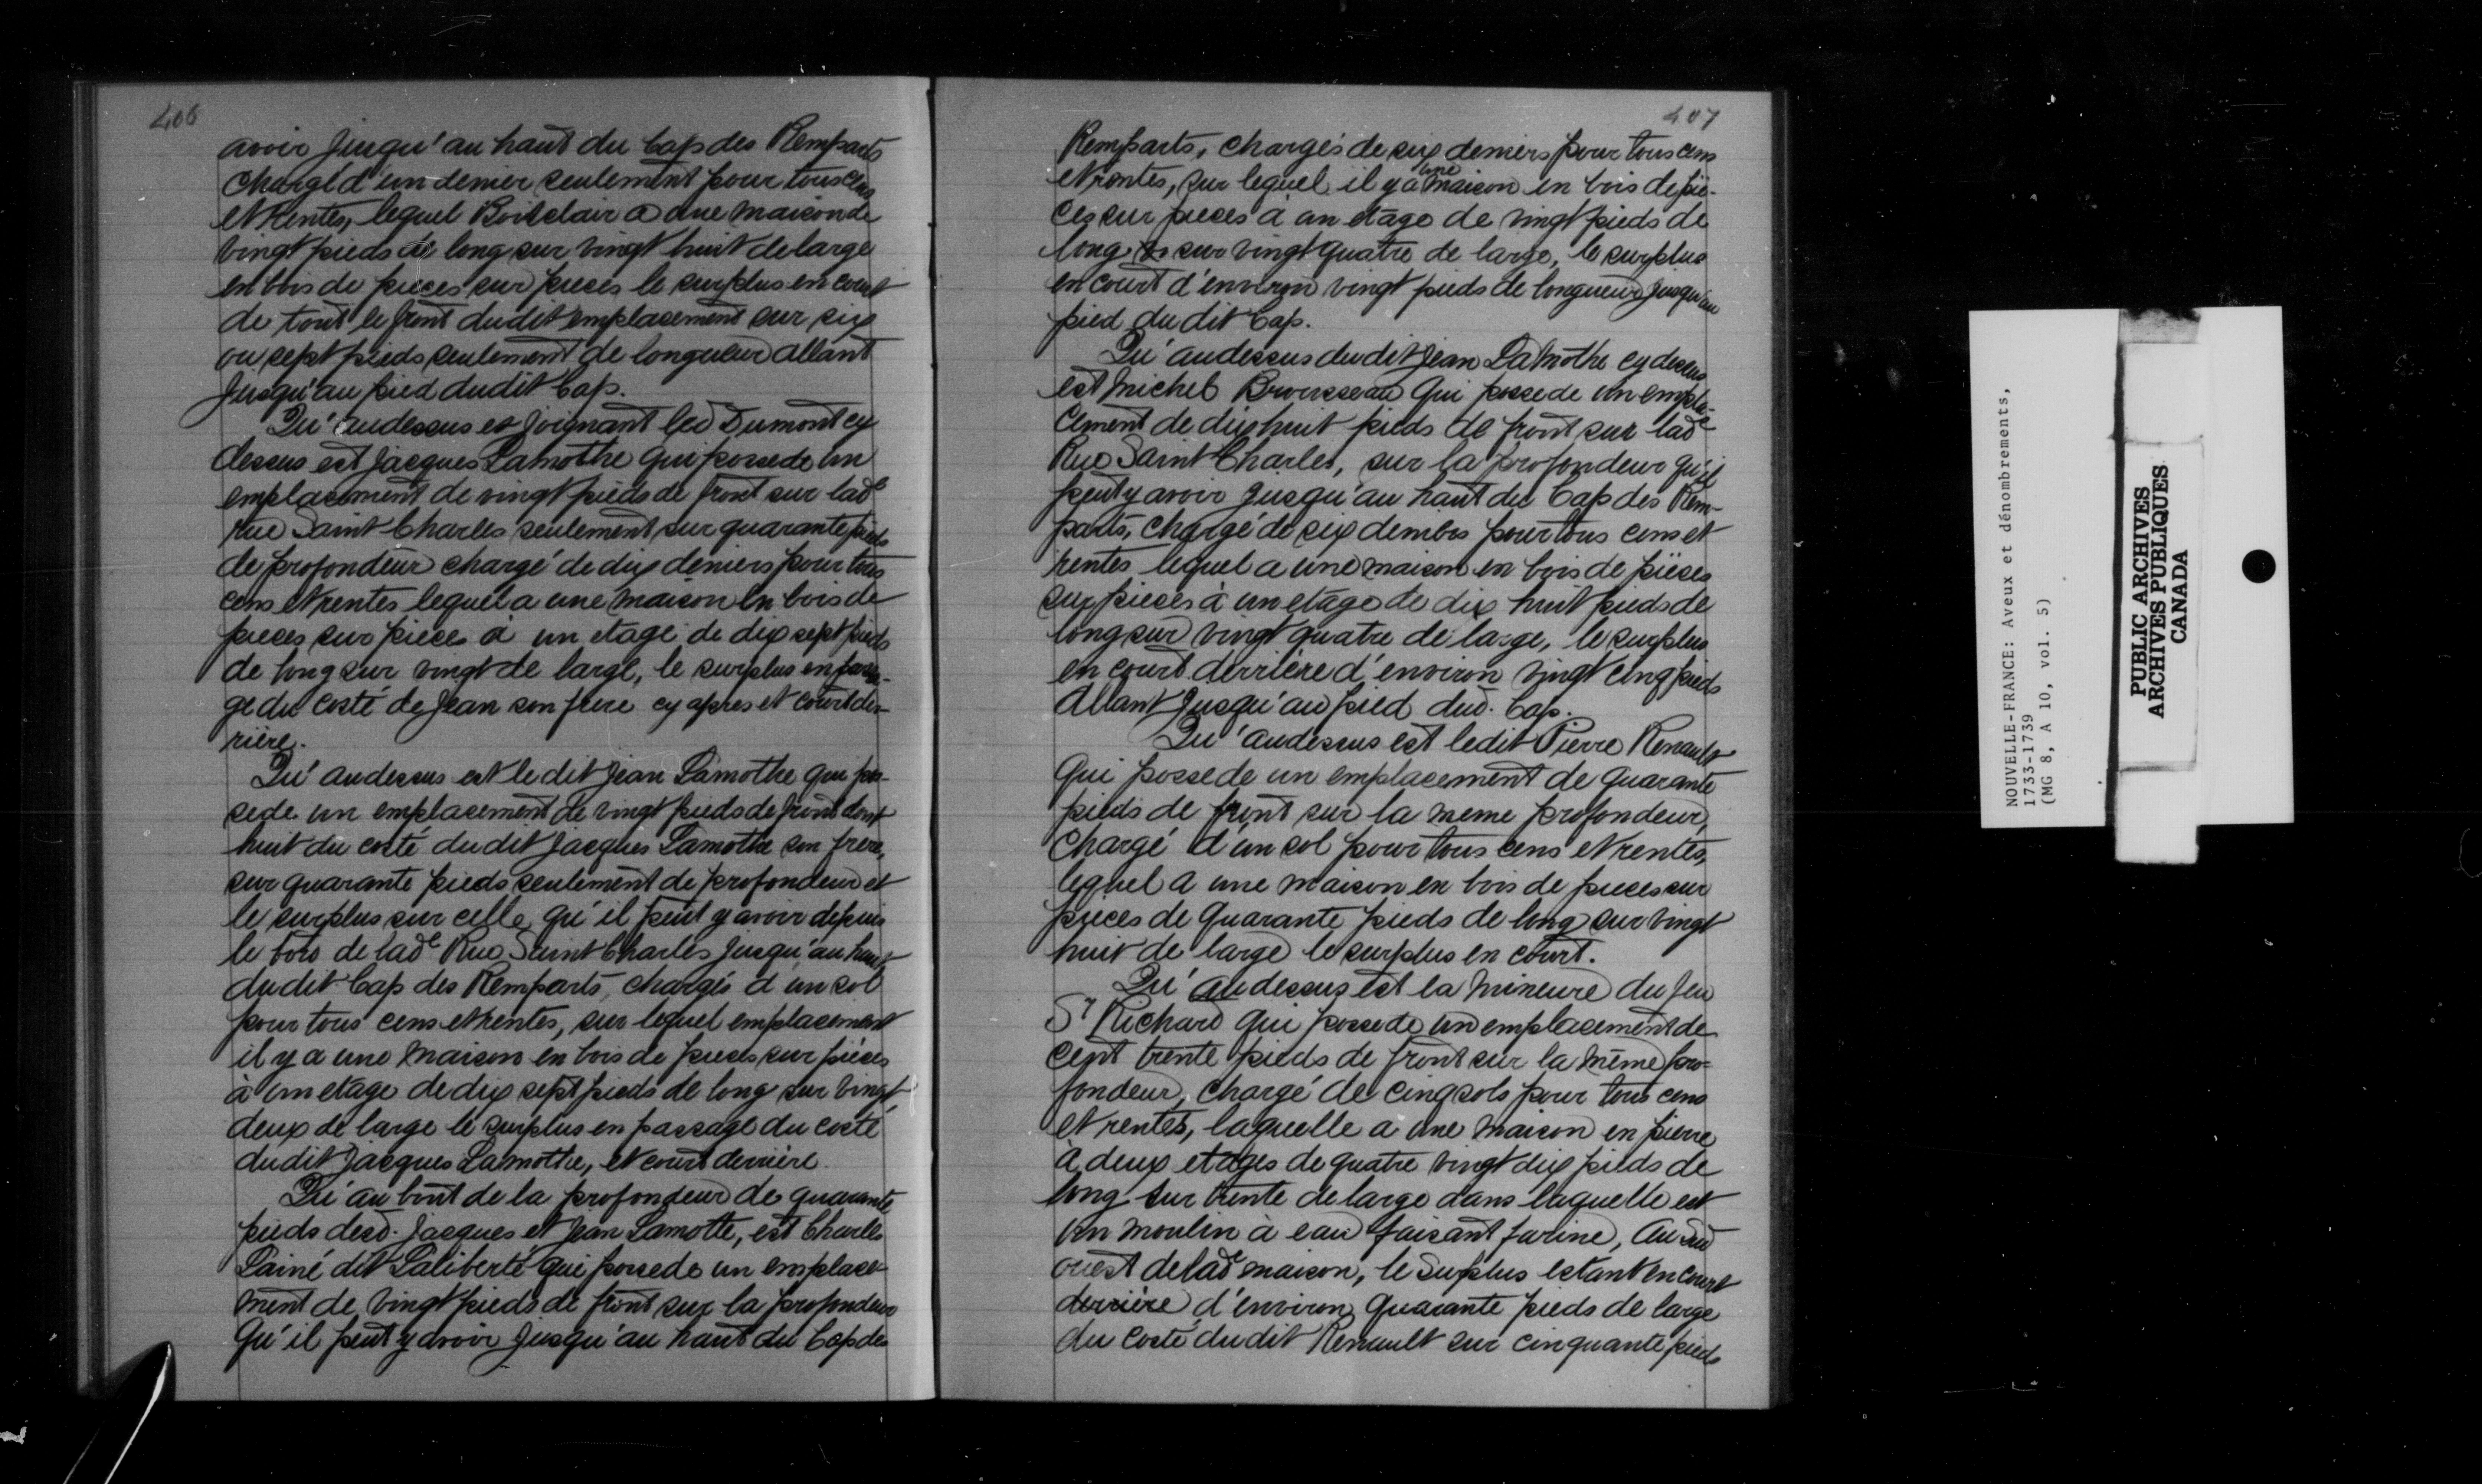 406
avoir jusqu'au haut du Cap des Remparts
chargé d'un denier seulement pour tous cens
et Rentes, lequel Boisclair a une maison de
vingt pieds de long sur vingt huit de large
en bois de pieces sur pieces le surplus en court
de tout le front dudit emplacement sur six
ou sept pieds seulement de longueur allant
jusqu'au pied dudit Cap.
Qu'audessus et joignant led Dumont cy
dessus est Jacques Lamothe qui possede un
emplacement de vingt pieds de front sur lade
rue Saint Charles seulement sur quarante pieds
de profondeur chargé de dix deniers pour tous
cens et rentes lequel a une maison en bois de
pieces sur pieces à un etage de dix sept pieds
de long sur vingt de large, le surplus en passa-
ge du costé de Jean son frere cy apres et court der-
rière.
Qu'audessus est le dit Jean Lamothe qui pos-
sede un emplacement de vingt pieds de front dont
huit du costé dudit Jacques Lamothe son frere,
sur quarante pieds seulement de profondeur et
le surplus sur celle qu'il peut y avoir depuis
le bord de lade Rue Saint Charles jusqu'au haut
dudit Cap des Remparts, chargés d'un sol
pour tous cens et rentes, sur lequel emplacement
il y a une maison en bois de pieces sur pièces
à un etage de dix sept pieds de long sur vingt
deux de large le surplus en passage du costé
dudit Jacques Lamothe, et court derrière.
Qu'au bout de la profondeur de quarante
pieds desd. Jacques et Jean Lamotte, est Charles
Lainé dit Laliberté qui possede un emplace-
ment de vingt pieds de front sur la profondeur
qu'il peut y avoir jusqu'au haut du Cap des
407
Remparts, chargés de six deniers pour tous cens
et rentes, sur lequel il y a une maison en bois de piè-
ces sur pieces à un etage de vingt pieds de
long sur vingt quatre de large, le surplus
en court d'environ vingt pieds de longueur jusqu'au
pied du dit Cap.
Qu'audessus du dit Jean Lamothe cy dessus
est Michel Brousseau qui possede un empla-
cement de dix huit pieds de front sur lade
Rue Saint Charles, sur la profondeur qu'il
peut y avoir jusqu'au haut du Cap des Rem-
parts, chargé de six deniers pour tous cens et
rentes lequel a une maison en bois de pièces
sur pieces à un etage de dix huit pieds de
long sur vingt quatre de large, le surplus
en court derrière d'environ vingt cinq pieds
allant jusqu'au pied dud. Cap.
Qu'audessus est ledit Pierre Renault
qui possede un emplacement de quarante
pieds de front sur la meme profondeur,
chargé d'un sol pour tous cens et rentes,
lequel a une maison en bois de pieces sur
pieces de quarante pieds de long sur vingt
huit de large le surplus en court.
Qu'audessus est la mineure du feu
Sr Richard qui possede un emplacement de
cent trente pieds de front sur la même pro-
fondeur, chargé de cinq sols pour tous cens
et rentes, laquelle a une maison en pierre
à deux etages de quatre vingt dix pieds de
long sur trente de large dans laquelle est
un moulin à eau faisant farine, au sud
ouest de lade maison, le surplus estant en court
derrière d'environ quarante pieds de large
du costé dudit Renault sur cinquante pieds
NOUVELLE-FRANCE: Aveux et dénombrements,
1733-1739
(MG 8, A 10, vol. 5)
PUBLIC ARCHIVES
ARCHIVES PUBLIQUES
CANADA